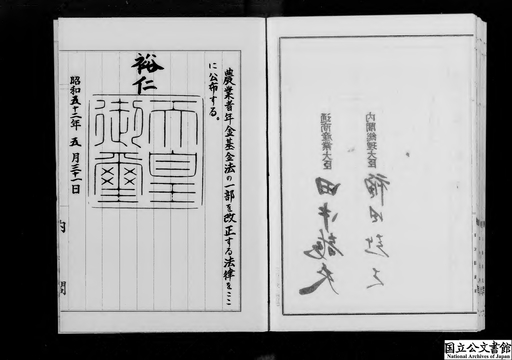 内閣総理大臣 福田赳夫
通商産業大臣 田中龍夫
農業者年金基金法の一部を改正する法律をここ
に公布する。
裕仁
天皇
御璽
昭和五十二年 五月三十一日
内 閣
国立公文書館
National Archives of Japan